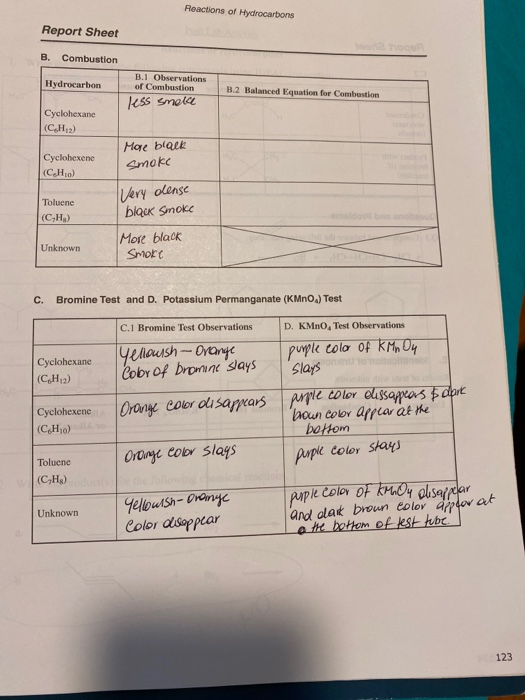 Reactions of Hydrocarbons
Report Sheet
B. Combustion
Hydrocarbon
B.1 Observations
of Combustion
B.2 Balanced Equation for Combustion
Cyclohexane
(C₆H₁₂)
less smoke
Cyclohexene
(C₆H₁₀)
More black
smoke
Toluene
(C₇H₈)
Very dense
black smoke
Unknown
More black
smoke
C. Bromine Test and D. Potassium Permanganate (KMnO₄) Test
C.1 Bromine Test Observations
D. KMnO₄ Test Observations
Cyclohexane
(C₆H₁₂)
Yellowish - Orange
Color of bromine stays
purple color of KMnO4
stays
Cyclohexene
(C₆H₁₀)
Orange color disappears
purple color dissappears & dark
broun color appear at the
bottom
Toluene
(C₇H₈)
Orange color stays
purple color stays
Unknown
Yellowish-Orange
Color disappear
purple color of KMnO4 disappear
and dark broun color appear at
the bottom of test tube
123